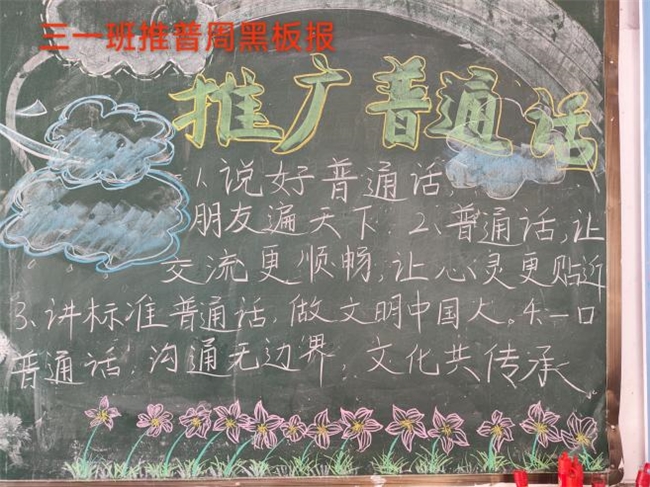 三一班推普周黑板报
推广普通话
1、说好普通话,
朋友遍天下 2、普通话,让
交流更顺畅,让心灵更贴近
3、讲标准普通话,做文明中国人。4、一口
普通话,沟通无边界,文化共传承